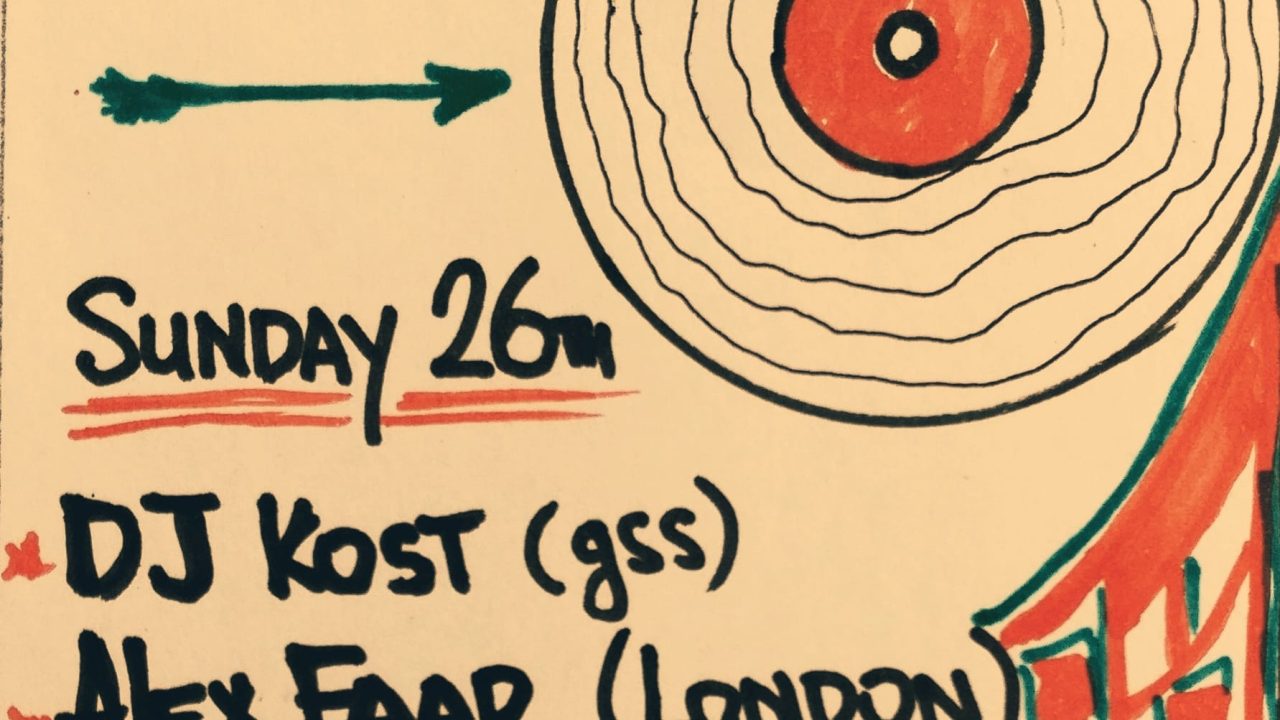 SUNDAY 26TH
DJ KOST (gss)
ALEX FAAD (LONDON)